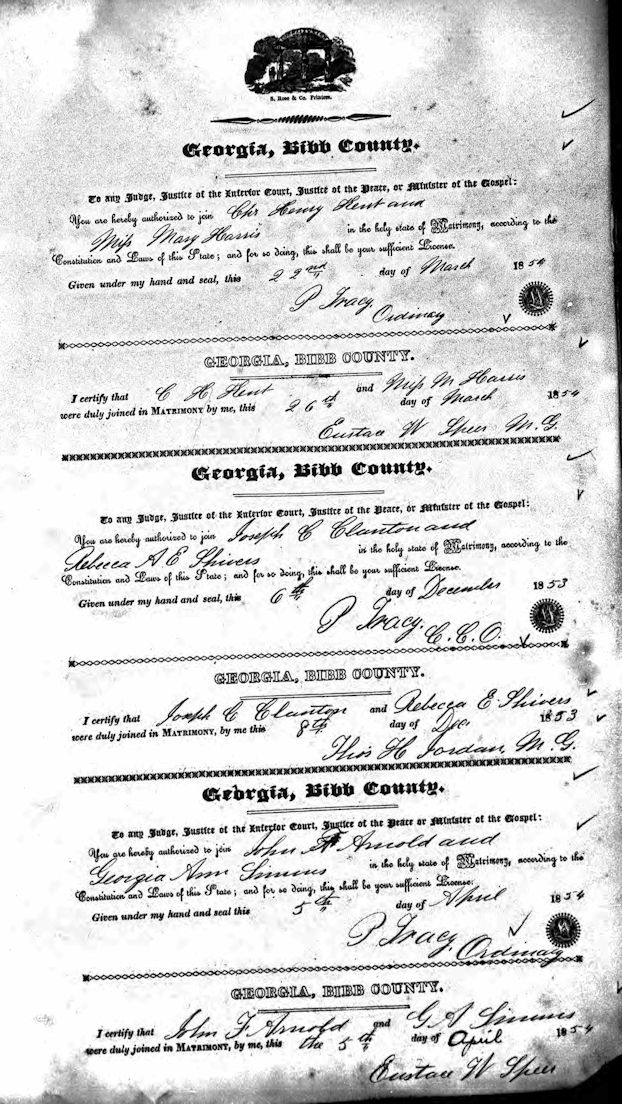 S. Rose & Co. Printers.
Georgia, Bibb County.
To any Judge, Justice of the Interior Court, Justice of the Peace, or Minister of the Gospel:
You are hereby authorized to join Chs Henry Hent and
Miss Mary Harris in the holy state of Matrimony, according to the
Constitution and Laws of this State; and for so doing, this shall be your sufficient License.
Given under my hand and seal, this 22nd day of March 1854
P Tracy.
Ordinary
GEORGIA, BIBB COUNTY.
I certify that C H Hent and Miss M Harris
were duly joined in MATRIMONY by me, this 26th day of March 1854
Eustace W Speer M.G
Georgia, Bibb County.
To any Judge, Justice of the Interior Court, Justice of the Peace, or Minister of the Gospel:
You are hereby authorized to join Joseph C Clanton and
Rebecca A E Shivers in the holy state of Matrimony, according to the
Constitution and Laws of this State; and for so doing, this shall be your sufficient License.
Given under my hand and seal, this 6th day of December 1853
P Tracy.
C.C.O.
GEORGIA, BIBB COUNTY.
I certify that Joseph C Clanton and Rebecca E Shivers
were duly joined in MATRIMONY, by me this 8th day of Dec 1853
Thos H Jordan, M.G.
Georgia, Bibb County.
To any Judge, Justice of the Interior Court, Justice of the Peace or Minister of the Gospel:
You are hereby authorized to join John F Arnold and
Georgia Ann Simms in the holy state of Matrimony, according to the
Constitution and Laws of this State; and for so doing, this shall be your sufficient License:
Given under my hand and seal this 5th day of April 1854
P Tracy.
Ordinary
GEORGIA, BIBB COUNTY.
I certify that John F Arnold and G A Simms
were duly joined in MATRIMONY, by me, this the 5th day of April 1854
Eustace W Speer